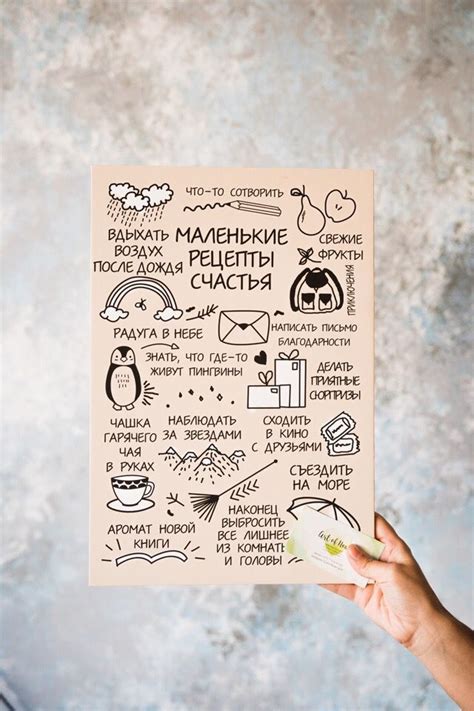 ЧТО-ТО СОТВОРИТЬ
ВДЫХАТЬ
ВОЗДУХ
ПОСЛЕ ДОЖДЯ
МАЛЕНЬКИЕ
РЕЦЕПТЫ
СЧАСТЬЯ
СВЕЖИЕ
ФРУКТЫ
ПРИКЛЮЧЕНИЯ
РАДУГА В НЕБЕ
НАПИСАТЬ ПИСЬМО
БЛАГОДАРНОСТИ
ЗНАТЬ, ЧТО ГДЕ-ТО
ЖИВУТ ПИНГВИНЫ
ДЕЛАТЬ
ПРИЯТНЫЕ
СЮРПРИЗЫ
ЧАШКА
ГАРЯЧЕГО
ЧАЯ
В РУКАХ
НАБЛЮДАТЬ
ЗА ЗВЕЗДАМИ
СХОДИТЬ
В КИНО
С ДРУЗЬЯМИ
СЪЕЗДИТЬ
НА МОРЕ
АРОМАТ НОВОЙ
КНИГИ
НАКОНЕЦ
ВЫБРОСИТЬ
ВСЕ ЛИШНЕЕ
ИЗ КОМНАТЫ
И ГОЛОВЫ
Art of